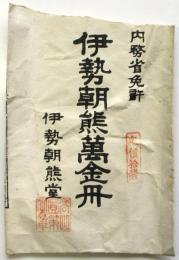 内務省免許
伊勢朝熊萬金丹
伊勢朝熊堂